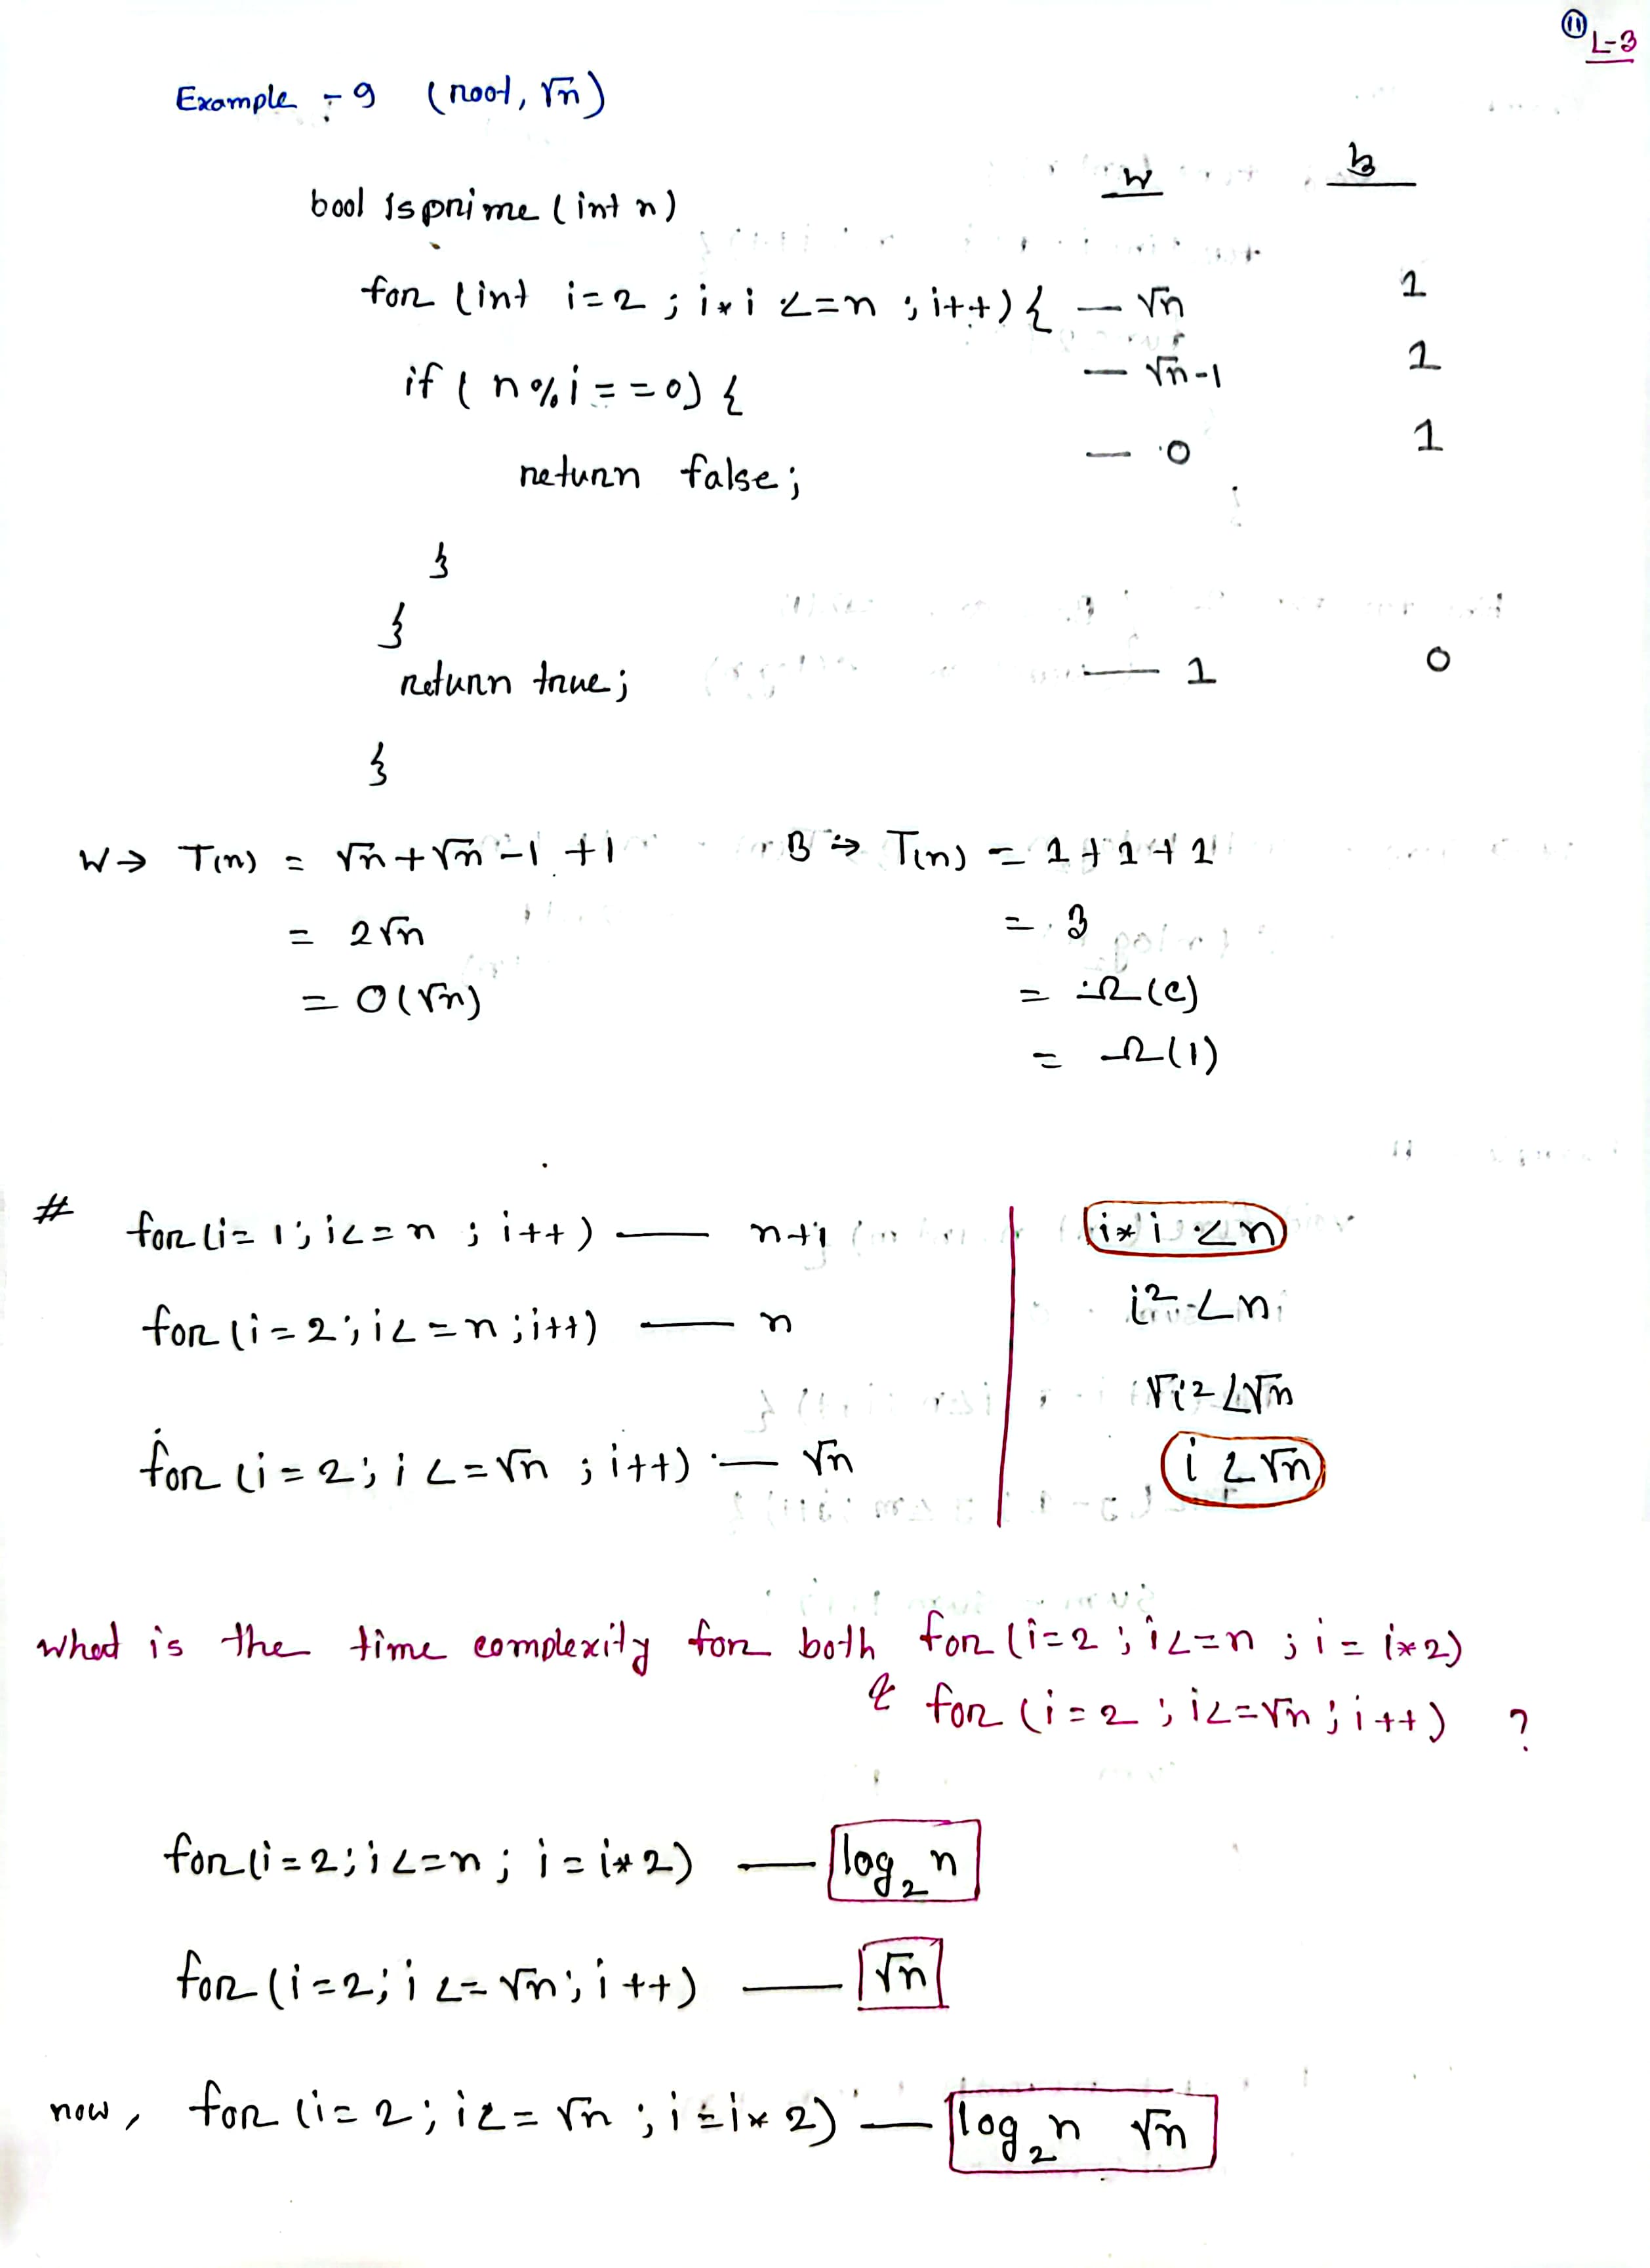 ⑪ L-3
Example :- 9 (root, √n)
w b
bool isprime (int n)
for (int i=2 ; i*i <=n ; i++) { — √n 1
if ( n%i == 0) { — √n-1 1
return false; — 0 1
}
}
return true; — 1 0
}
W → T(n) = √n + √n - 1 + 1
= 2√n
= O(√n)
B → T(n) = 1 + 1 + 1
= 3
= Ω(c)
= Ω(1)
# for (i= 1; i<=n ; i++) — n+1
for (i=2; i<=n; i++) — n
for (i=2; i<=√n ; i++) — √n
i*i <n
i² <n
√i² <√n
i <√n
what is the time complexity for both for (i=2 ; i<=n ; i = i*2)
& for (i=2 ; i<=√n ; i++) ?
for (i=2; i<=n ; i = i*2) — log₂n
for (i=2; i <= √n; i++) — √n
now, for (i=2; i<= √n ; i=i*2) — log₂n √n